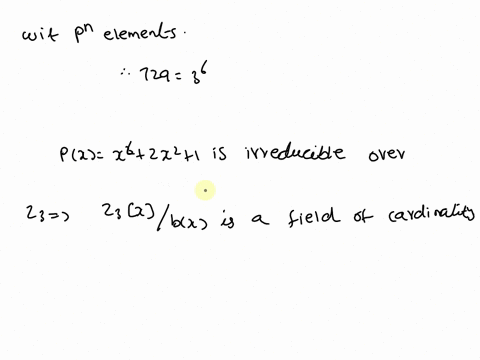 wit pⁿ elements.
∴ 729 = 3⁶
P(x) = x⁶+2x²+1 is irreducible over
Z₃ => Z₃[x]/p(x) is a field of cardinality